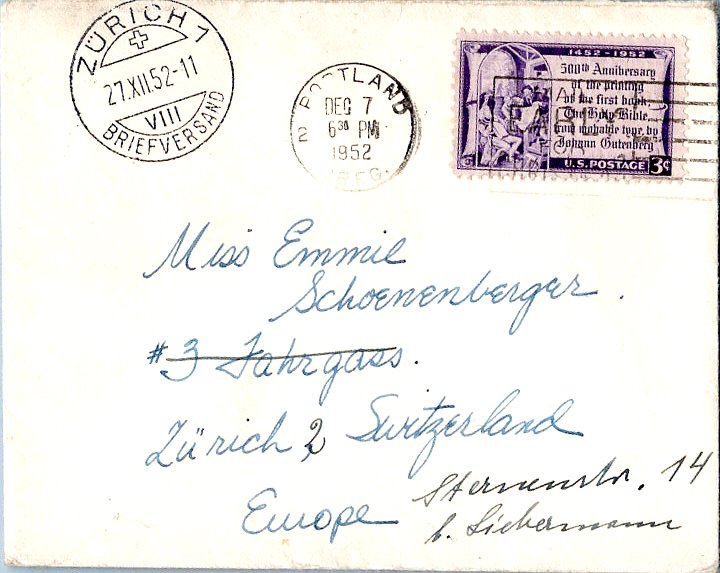 ZÜRICH 1
27.XII.52-11
VIII
BRIEFVERSAND
PORTLAND
2
DEC 7
6 30 PM
1952
OREG.
1452-1952
500th Anniversary
of the printing
of the first book,
The Holy Bible,
from movable type, by
Johann Gutenberg
U.S. POSTAGE 3¢
Miss Emmie
Schoenenberger.
#3 Fahrgass.
Zürich 2, Switzerland
Europe
Sternenstr. 14
b. Liebermann